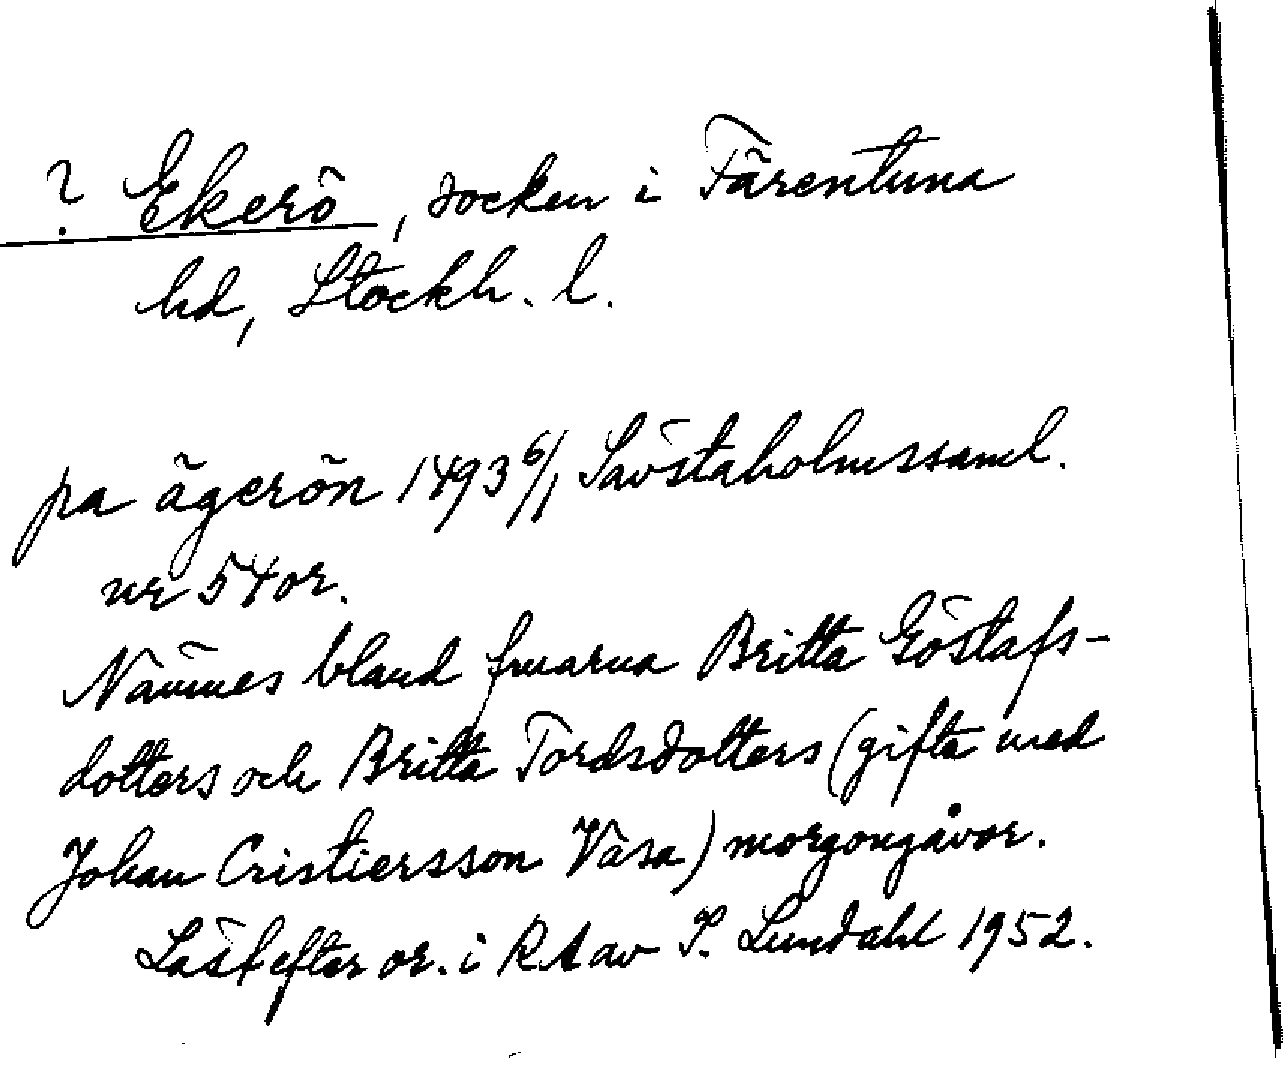 ? Ekerö, socken i Färentuna
hd, Stockh. l.
pa ägerön 1493 6/1 Sävstaholmssaml.
nr 54 or.
Nämnes bland fruarna Britta Göstafs-
dotters och Britta Tordsdotters (gifta med
Johan Cristiersson Vasa) morgongåvor.
Läst efter or. i RA av I. Lundahl 1952.